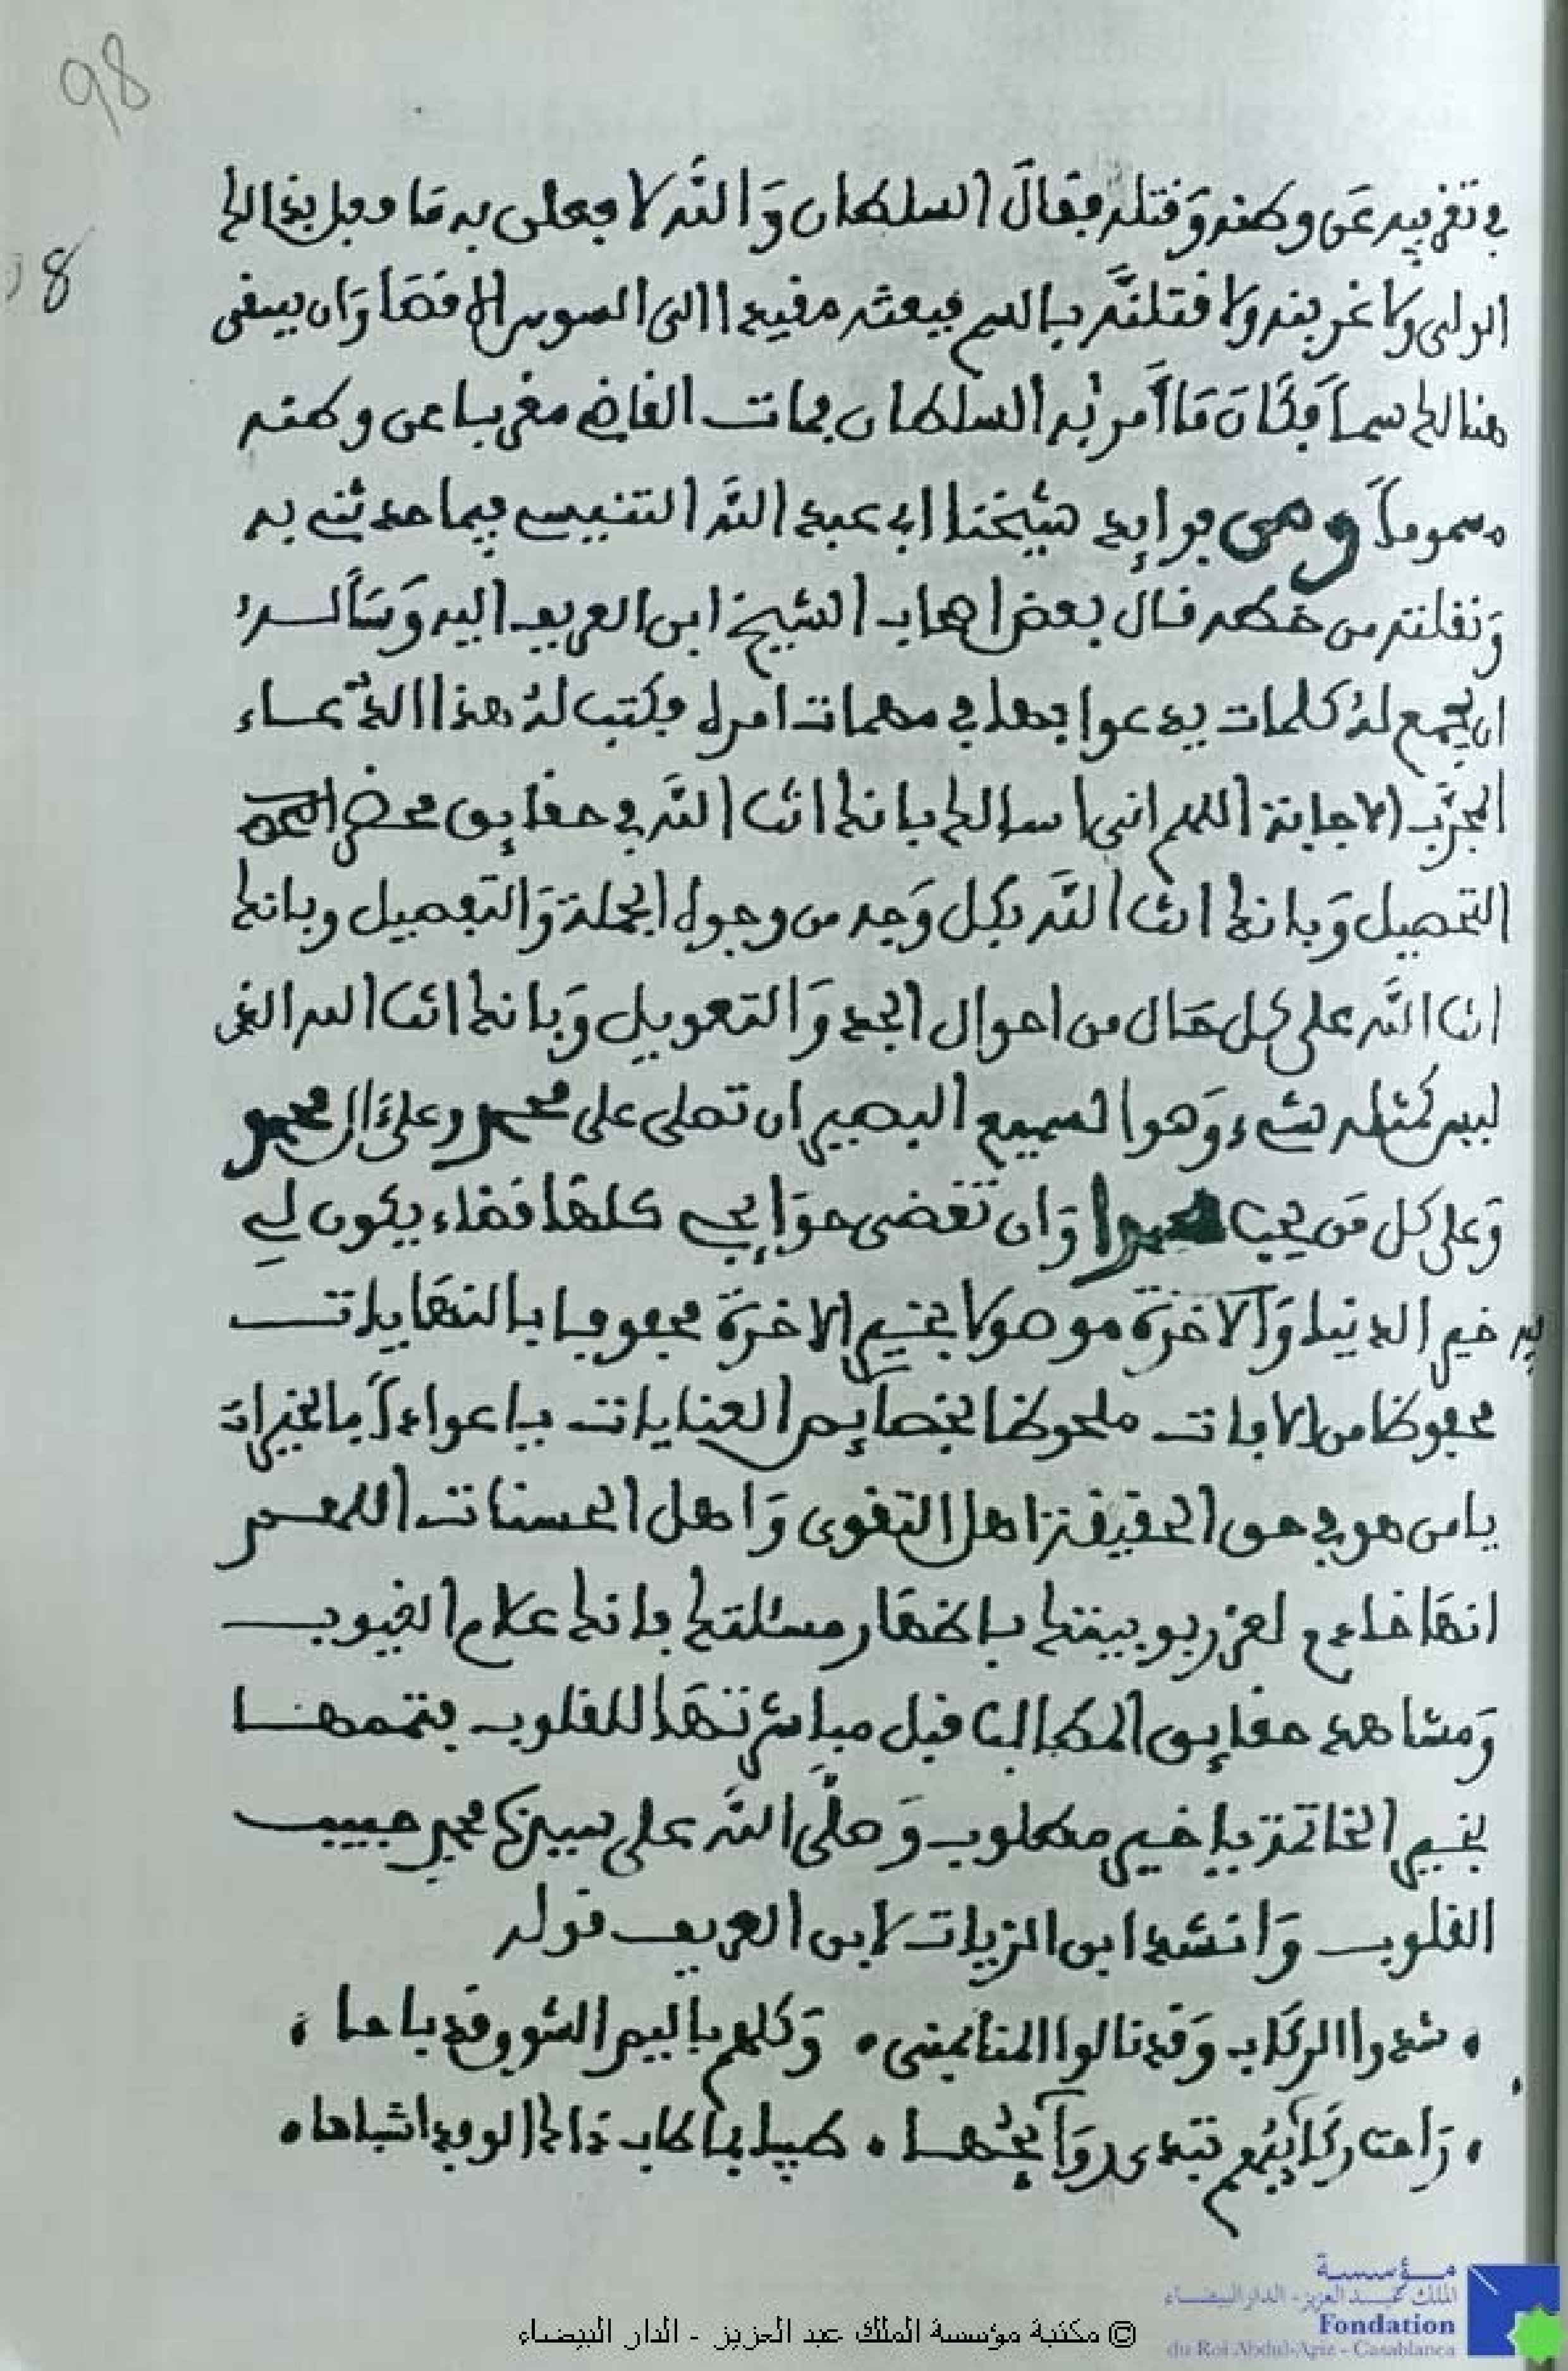 98
8
في تغريبه عن وطنه وقتله فقال السلطان والله لا فعلن به ما فعل بذالك
الولي ولاغربنه ولا قتلنه بالسم فبعثه مقيدا الى السوس الاقصا وان يسقى
هنالك سما فكان ما أمر به السلطان فمات القاضي مغربا عن وطنه
مسموما ومن فوايد شيخنا ابي عبد الله التنيسي فيما حدثني به
ونقلته من خطه قال بعض اصحاب الشيخ ابن العريف اليه وسأله
ان يجمع له كلمات يدعوا بها في مهمات امره فكتب له هذا الدعاء
المجرب الاجابة اللهم اني اسالك بانك انت الله في حقايق محض
التحصيل وبانك انت الله بكل وجه من وجوه الجملة والتفصيل وبانك
انت الله على كل حال من احوال الجد والتعويل وبانك انت الله الذي
ليس كمثله شيء وهو السميع البصير ان تصلى على محمد وعلى ءال محمد
وعلى كل من يحب محمدا وان تقضى حوايجي كلها قضاء يكون لي
به خير الدنيا والاخرة موصولا بخير الاخرة محفوفا بالنهايات
محفوظا من الافات ملحوظا بخصايص العنايات يا عوادا بالخيرات
يامن هو في حق الحقيقة اهل التقوى واهل الحسنات اللهم
انها خاضع لعز ربوبيتك بالاظهار مسئلتك بانك علام الغيوب
ومشاهد حقايق المطالب قبل مباشرتها للقلوب فتممها
بخير الخاتمة يا خير مطلوب وصلى الله على سيدنا محمد حبيب
القلوب وانشد ابن الزيات لابن العريف قوله
شدوا الركاب وقد نالوا المنا بمنى وكلهم باليم الشوق قد باحا
راحت ركايبهم تبدى روايحها طيبا بما طاب ذاك الوفد اشباحا
© مكتبة مؤسسة الملك عبد العزيز - الدار البيضاء
مؤسسة
الملك عبد العزيز - الدار البيضاء
Fondation
du Roi Abdul-Aziz - Casablanca